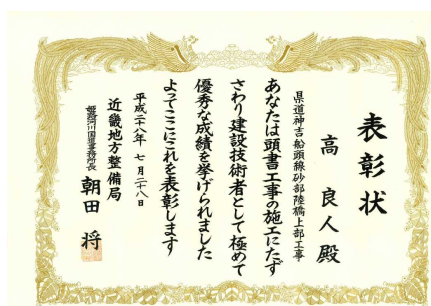 表彰状
高 良人 殿
県道神吉船頭線砂部陸橋上部工事
あなたは頭書工事の施工にたず
さわり建設技術者として極めて
優秀な成績を挙げられました
よってここにこれを表彰します
平成二十八年 七月二十八日
近畿地方整備局
姫路河川国道事務所長 朝田 将